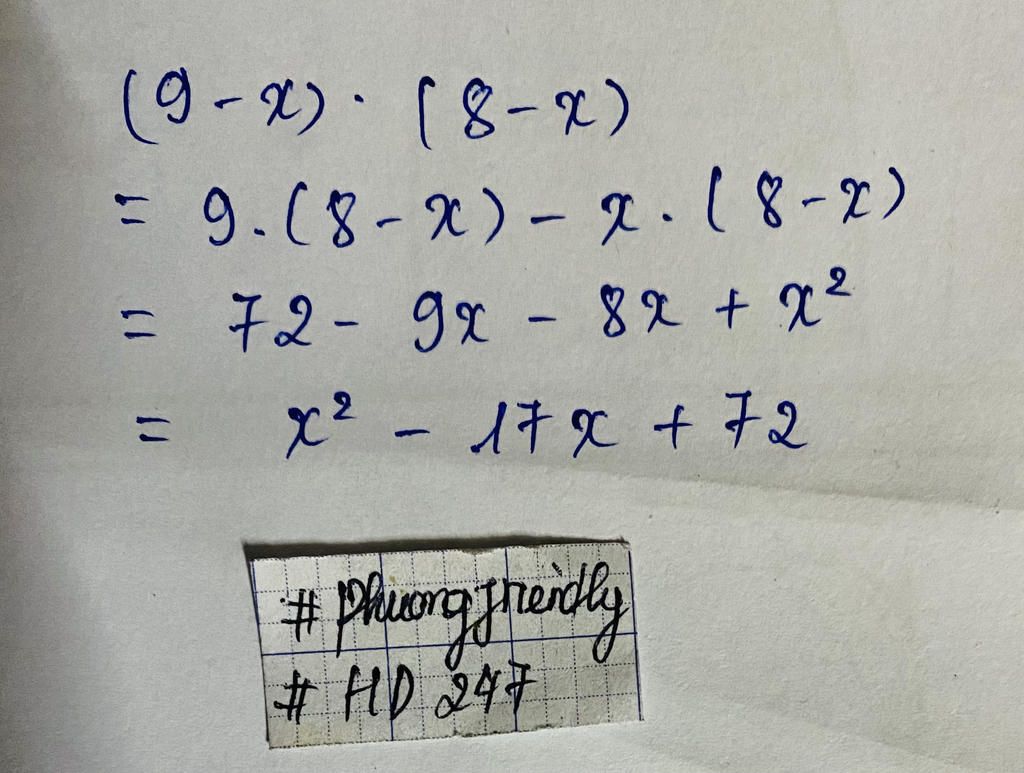 (9-x) · (8-x)
= 9.(8-x) - x.(8-x)
= 72 - 9x - 8x + x²
= x² - 17x + 72
# phuongfriendly
# HD 247